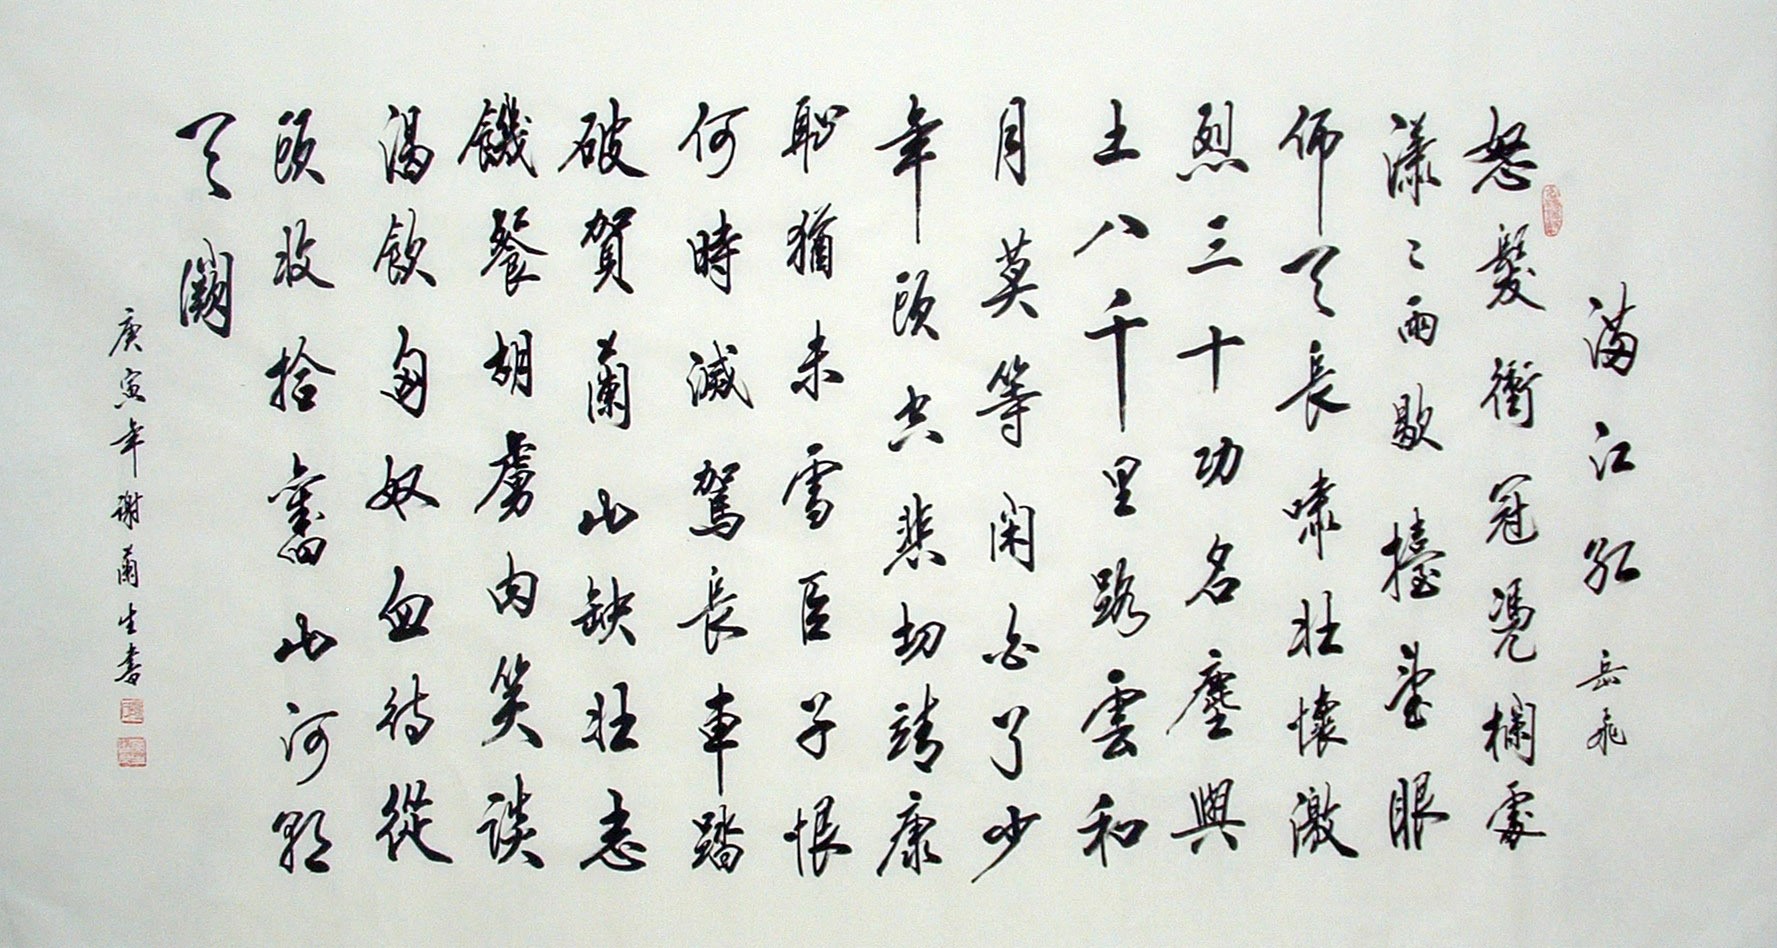 滿江紅 岳飛
怒髮衝冠憑欄處
瀟〻雨歇擡望眼
仰天長嘯壯懷激
烈三十功名塵與
土八千里路雲和
月莫等閑白了少
年頭空悲切靖康
恥猶未雪臣子恨
何時滅駕長車踏
破賀蘭山缺壯志
饑餐胡虜肉笑談
渴飲匈奴血待從
頭收拾舊山河朝
天闕
庚寅年謝蘭生書